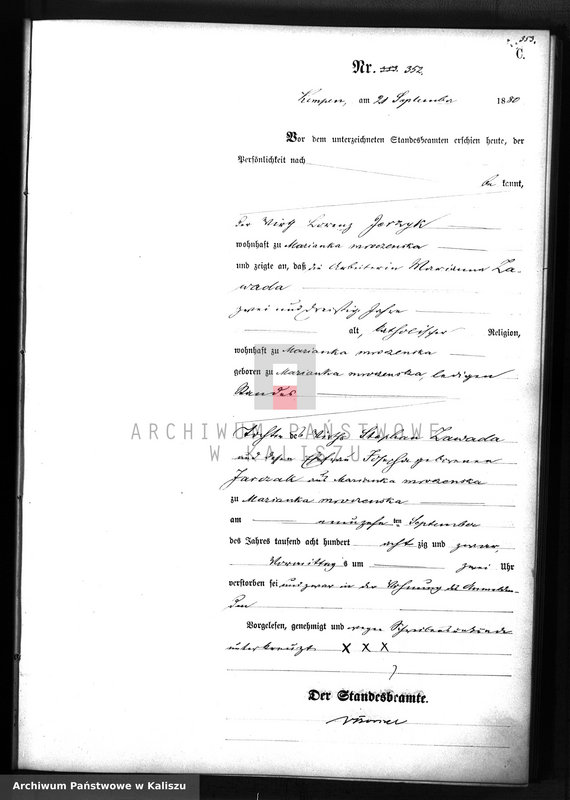 353.
C.
Nr. 353. 352.
Kempen, am 21 September 1880
Vor dem unterzeichneten Standesbeamten erschien heute, der
Persönlichkeit nach
be kannt,
der Wirth Lorenz Jarzyk
wohnhaft zu Marianka mroczenska
und zeigte an, daß die Arbeiterin Marianna Za-
wada
zwei und dreißig Jahre
alt, katholischer Religion,
wohnhaft zu Marianka mroczenska
geboren zu Marianka mroczenska, ledigen
Standes
ARCHIWUM PAŃSTWOWE
W KALISZU
Tochter des Wirths Stephan Zawada
und dessen Ehefrau Josepha geborenen
Jarczak aus Marianka mroczenska
zu Marianka mroczenska
am neunzehnten September
des Jahres tausend acht hundert achtzig und
Vormittags um zwei Uhr
verstorben sei und zwar in der Wohnung des Anmelden-
den
Vorgelesen, genehmigt und wegen Schreibensunkunde
unterkreuzt X X X
Der Standesbeamte.
Archiwum Państwowe w Kaliszu